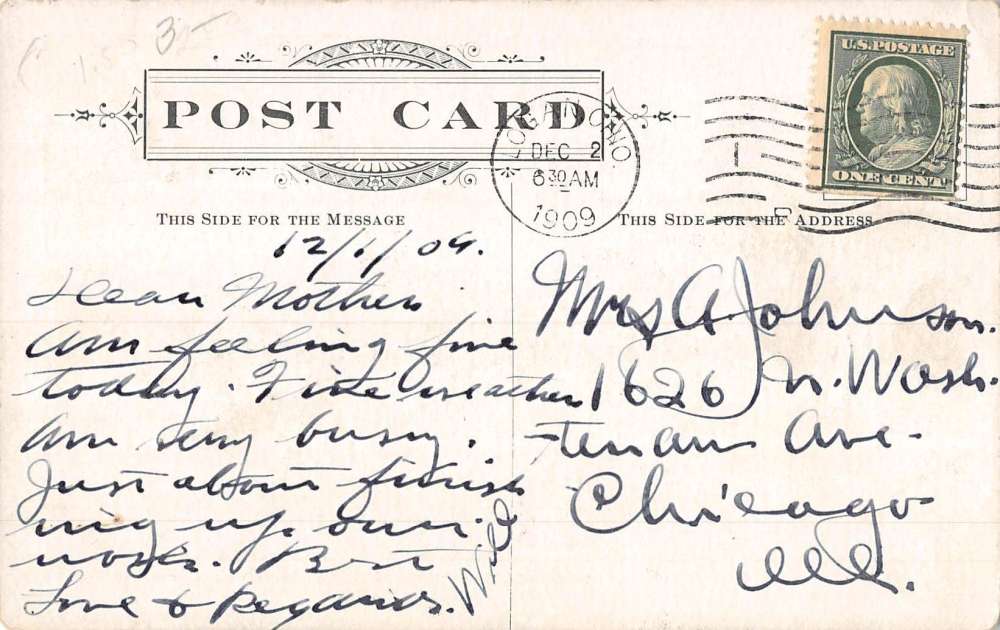 3-
1.5
POST CARD
THIS SIDE FOR THE MESSAGE
THIS SIDE FOR THE ADDRESS
DEC 2
6 30 AM
1909
U.S. POSTAGE
ONE CENT
12/1/09.
Dear Mother
Am feeling fine
today. Fine weather
Am very busy.
Just about finish
ing up our
work. Best
Love & Regards.
Will
Mrs A Johnson.
1626 N. Wash-
tenaw Ave.
Chicago
Ill.